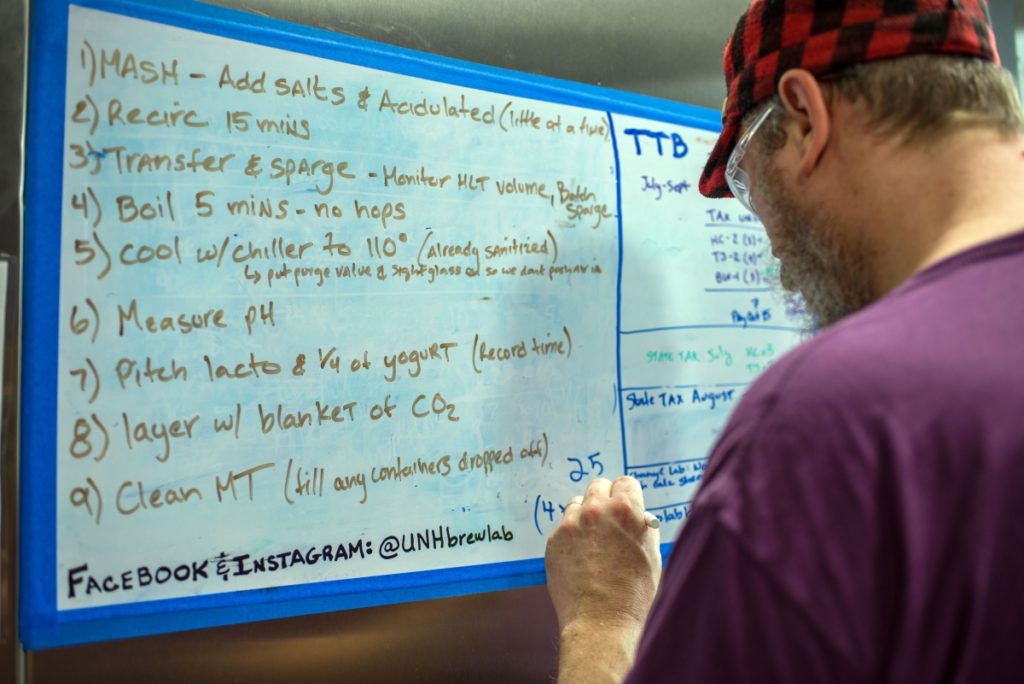 1) MASH - Add salts & Acidulated (little at a time)
2) Recirc 15 mins
3) Transfer & sparge - Monitor HLT volume, Batch
sparge
4) Boil 5 mins - no hops
5) cool w/chiller to 110° (Already sanitized)
↳ put purge valve & sightglass on so we dont push air in
6) Measure pH
7) Pitch lacto & 1/4 of yogurt (Record time)
8) layer w/ blanket of CO2
9) Clean MT (fill any containers dropped off)
25
(4
FACEBOOK & INSTAGRAM: @UNHbrewlab
TTB
July-Sept
TAX
HC-2 (3)
TJ-2 (4)
STATE TAX July HC x3
State TAX August